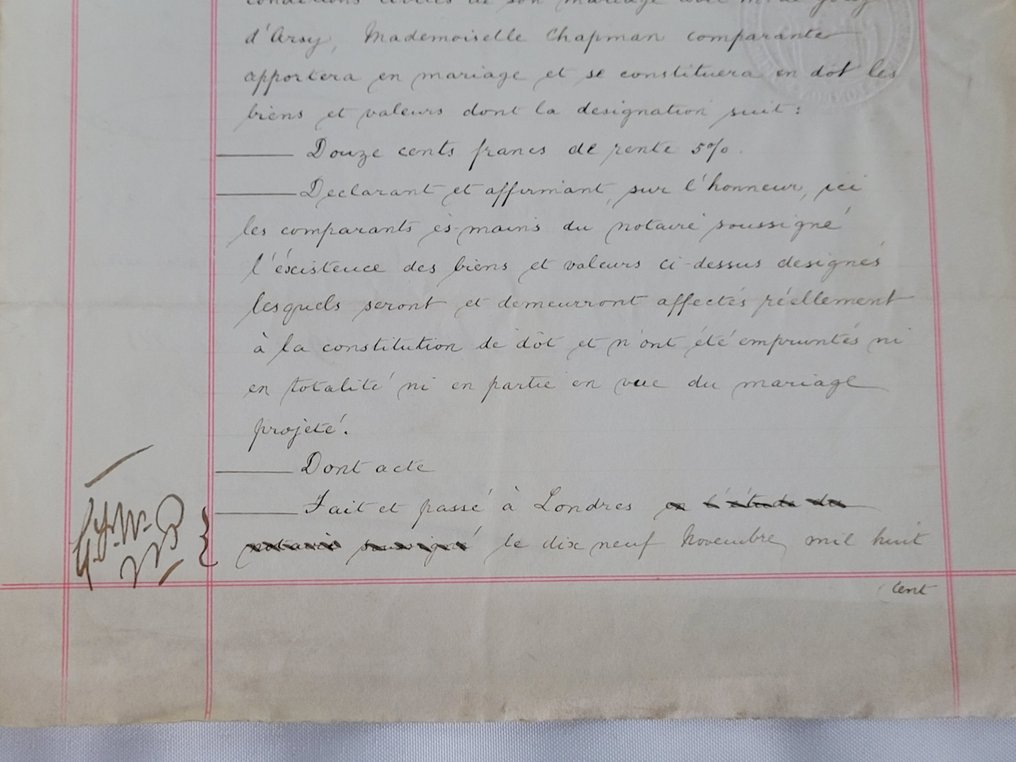 conditions civiles de son mariage avec M. de
d'Arsy, Mademoiselle Chapman comparante
apportera en mariage et se constituera en dot les
biens et valeurs dont la designation suit:
Douze cents francs de rente 5%.
Declarant et affirmant, sur l'honneur, ici
les comparants és-mains du notaire soussigné
l'éxistence des biens et valeurs ci-dessus designés
lesquels seront et demeurront affectés réellement
à la constitution de dôt et n'ont été empruntés ni
en totalité ni en partie en vue du mariage
projeté.
Dont acte
Fait et passé à Londres en l'étude du
notaire soussigné le dix neuf Novembre mil huit
Cent